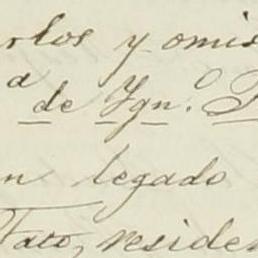 rlos y omis
a de Ygn.º
n legado
Tato, residen